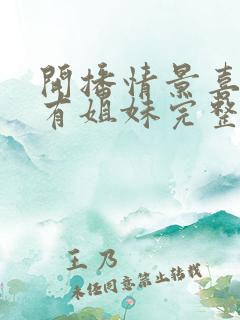 開播情景喜
有姐妹完整
王乃
未经同意禁止转载